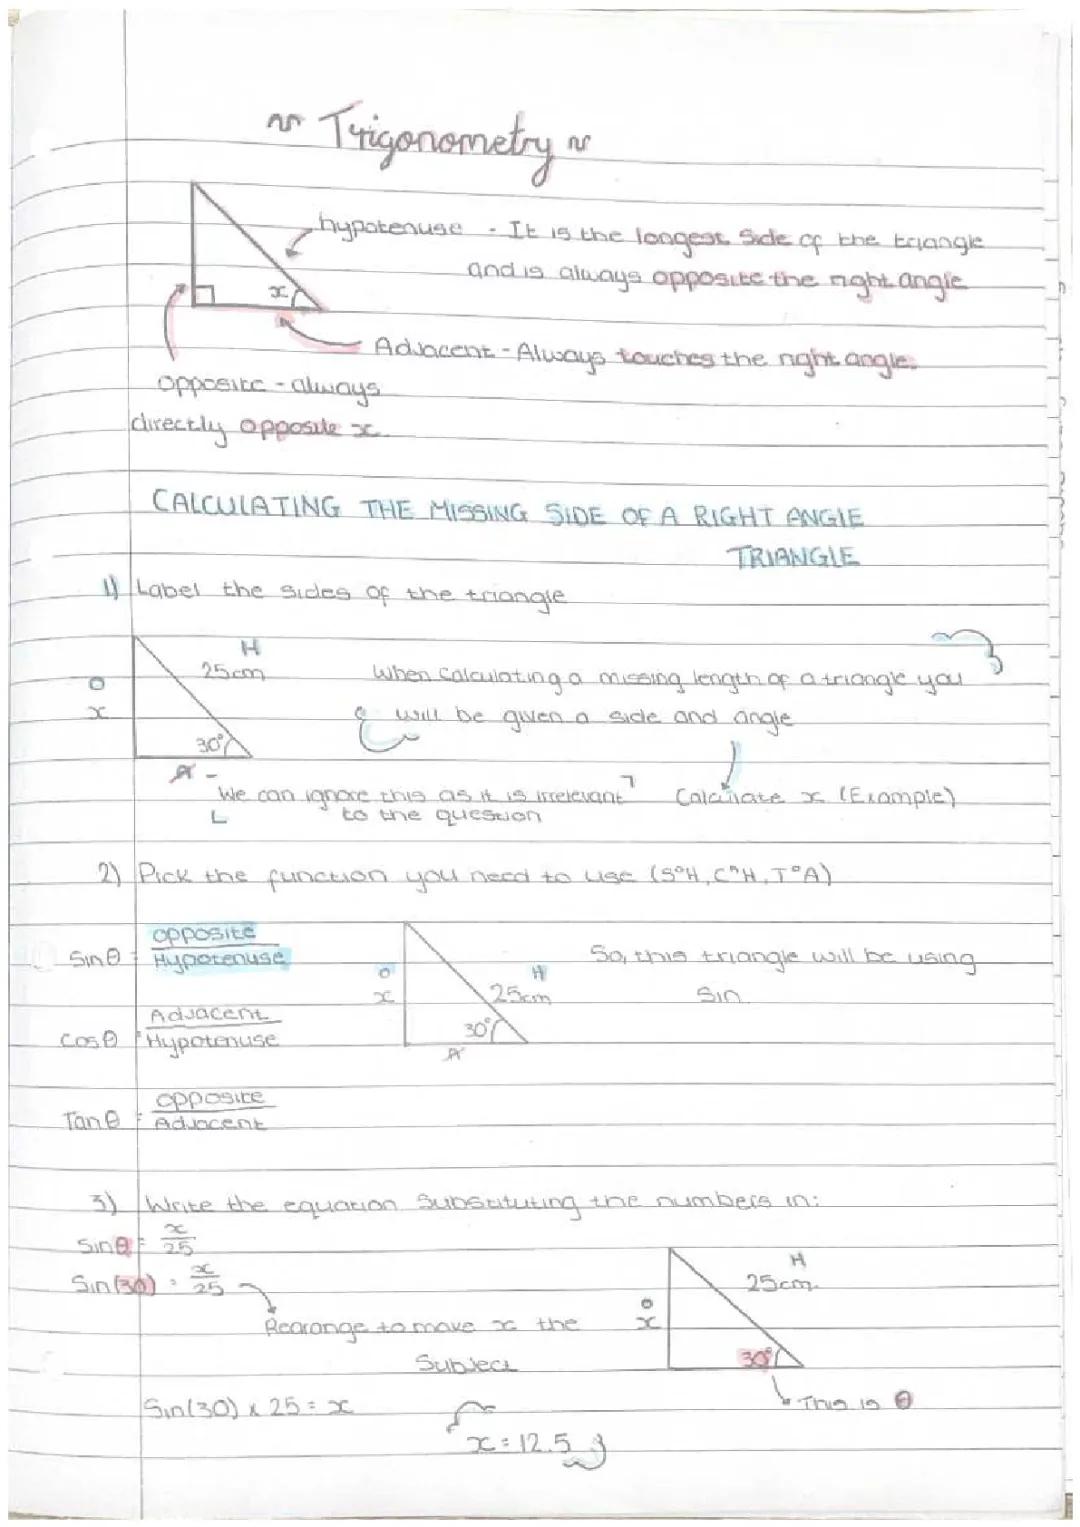 ~ Trigonometry ~
hypotenuse - It is the longest side of the triangle
and is always opposite the right angle
x
Adjacent - Always touches the right angle.
opposite - always
directly opposite x.
CALCULATING THE MISSING SIDE OF A RIGHT ANGLE
TRIANGLE
1) Label the sides of the triangle
H
25cm
O
x
30°
A -
When calculating a missing length of a triangle you
will be given a side and angle
We can ignore this as it is irrelevant
to the question
Calculate x (Example)
2) Pick the function you need to use (SOH, CAH, TOA)
Sinθ = opposite
Hypotenuse
Cosθ = Adjacent
Hypotenuse
Tanθ = opposite
Adjacent
O
x
H
25cm
30°
A
So, this triangle will be using
Sin
3) Write the equation substituting the numbers in:
Sinθ = x/25
Sin(30) = x/25
Rearange to make x the
Subject
Sin(30) x 25 = x
x = 12.5
H
25cm
O
x
30°
This is θ